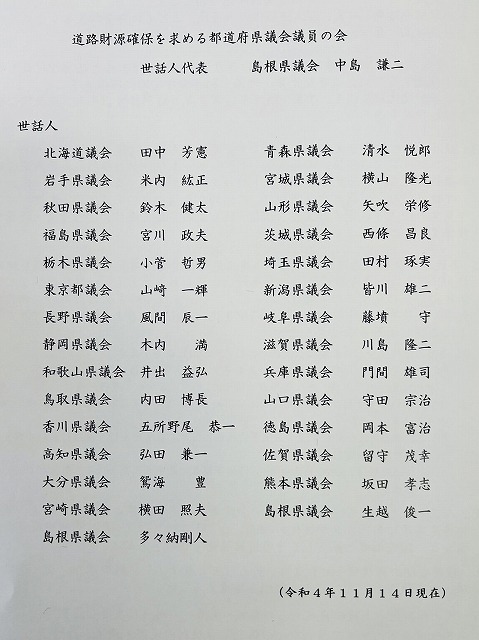 道路財源確保を求める都道府県議会議員の会
世話人代表　島根県議会　中島　謙二
世話人
北海道議会　田中　芳憲　青森県議会　清水　悦郎
岩手県議会　米内　紘正　宮城県議会　横山　隆光
秋田県議会　鈴木　健太　山形県議会　矢吹　栄修
福島県議会　宮川　政夫　茨城県議会　西條　昌良
栃木県議会　小菅　哲男　埼玉県議会　田村　琢実
東京都議会　山﨑　一輝　新潟県議会　皆川　雄二
長野県議会　風間　辰一　岐阜県議会　藤墳　守
静岡県議会　木内　満　滋賀県議会　川島　隆二
和歌山県議会　井出　益弘　兵庫県議会　門間　雄司
鳥取県議会　内田　博長　山口県議会　守田　宗治
香川県議会　五所野尾　恭一　徳島県議会　岡本　富治
高知県議会　弘田　兼一　佐賀県議会　留守　茂幸
大分県議会　鴛海　豊　熊本県議会　坂田　孝志
宮崎県議会　横田　照夫　島根県議会　生越　俊一
島根県議会　多々納剛人
（令和４年１１月１４日現在）